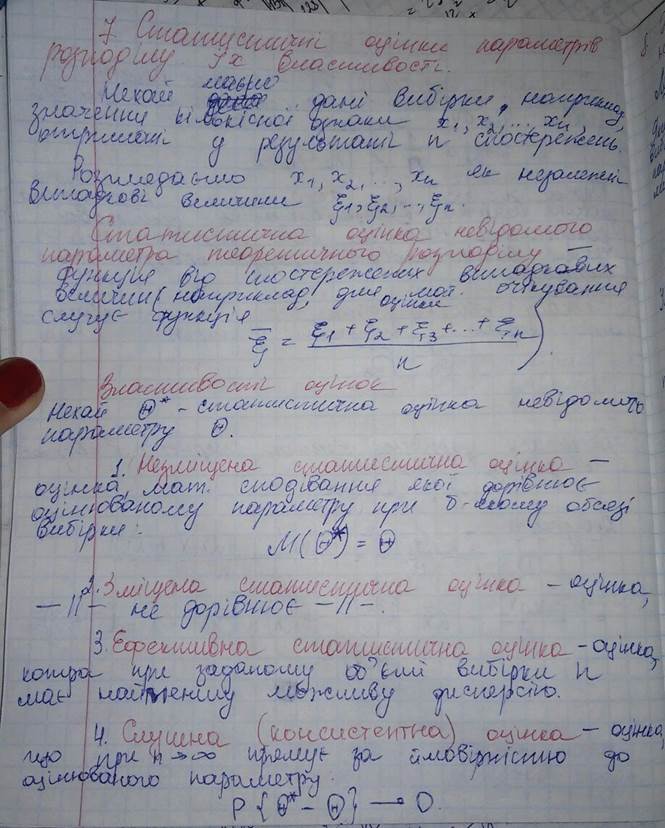 7. Статистичні оцінки параметрів
розподілу. Їх властивості.
Нехай маємо дані вибірки, наприклад,
значення кількісної ознаки x₁, x₂, ..., xₙ,
отримані у результаті n спостережень.
Розглядаємо x₁, x₂, ..., xₙ як незалежні
випадкові величини ξ₁, ξ₂, ..., ξₙ.
Статистична оцінка невідомого
параметра теоретичного розподілу —
функція від спостережених випадкових
величин (наприклад, для оцінки мат. очікування
слугує функція
ξ̅ = (ξ₁ + ξ₂ + ξ₃ + ... + ξₙ) / n ).
Властивості оцінок
Нехай Θ* - статистична оцінка невідомого
параметру Θ.
1. Незміщена статистична оцінка —
оцінка, мат. сподівання якої дорівнює
оцінюваному параметру при б-якому обсязі
вибірки:
M(Θ*) = Θ
2. Зміщена статистична оцінка - оцінка,
—||— не дорівнює —||—.
3. Ефективна статистична оцінка - оцінка,
котра при заданому об'ємі вибірки n
має найменшу можливу дисперсію.
4. Слушна (консистентна) оцінка - оцінка,
що при n → ∞ прямує за ймовірністю до
оцінюваного параметру.
P{Θ* - Θ} → 0.